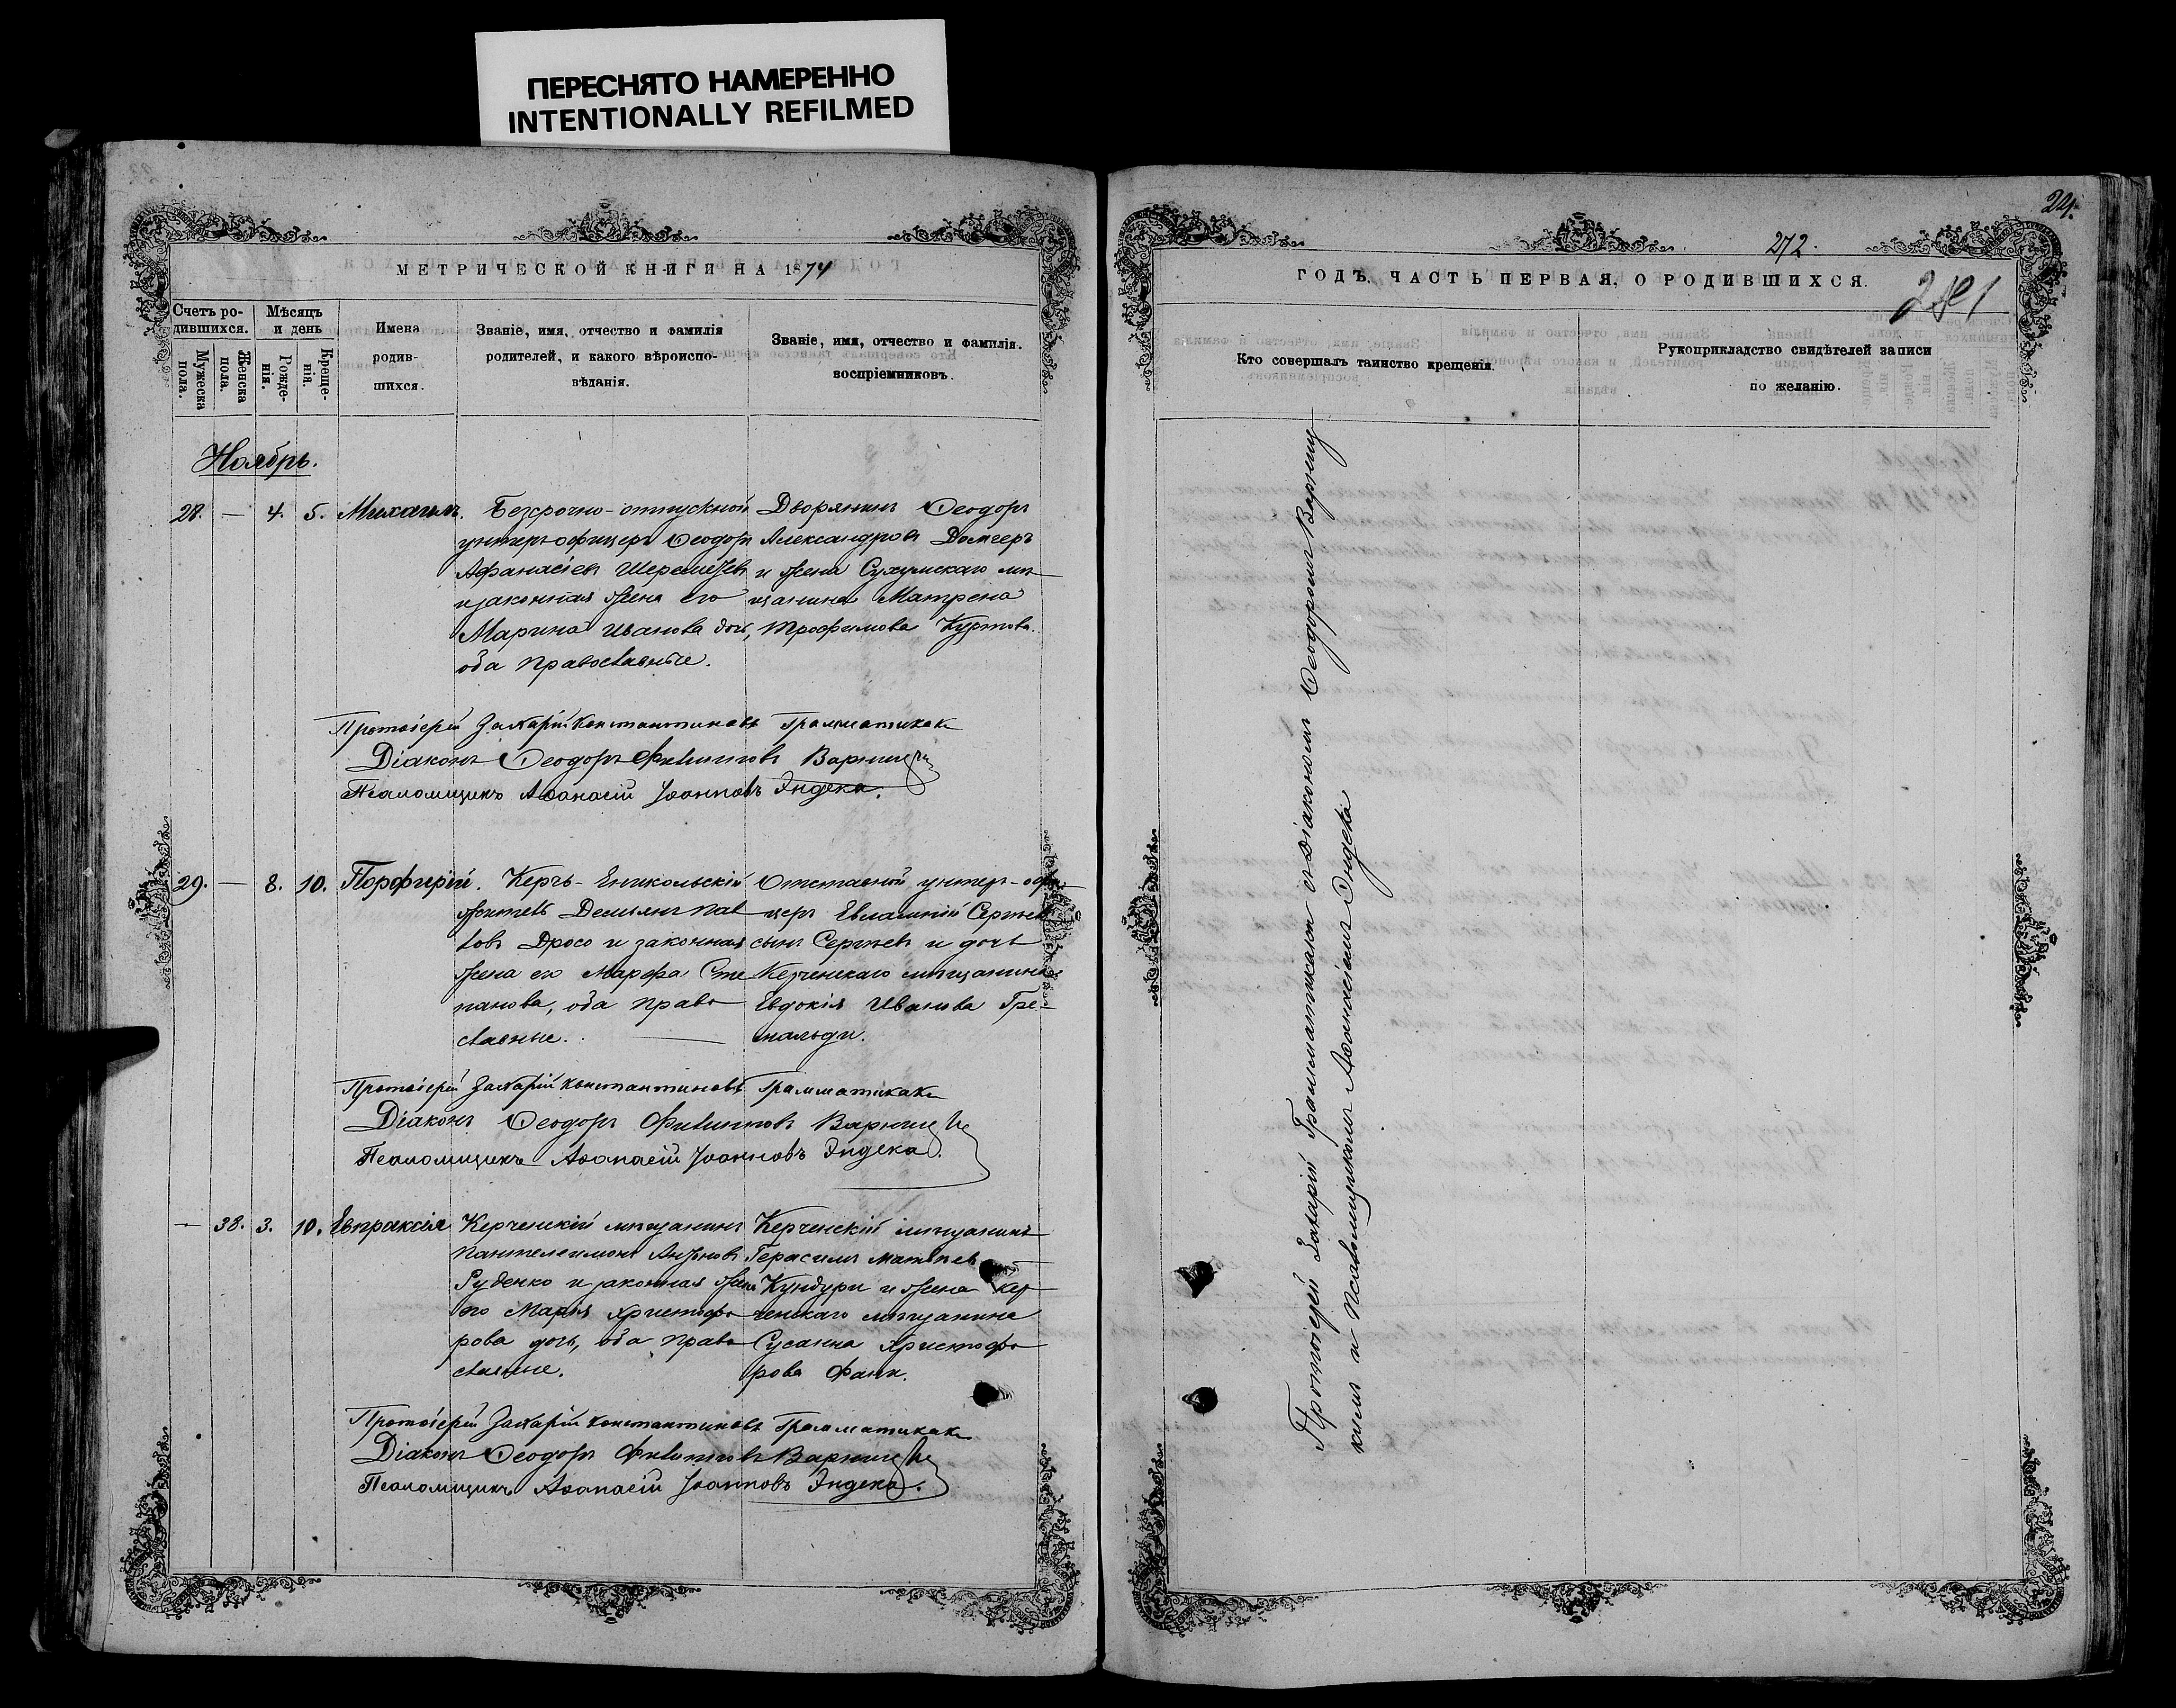 ПЕРЕСНЯТО НАМЕРЕННО
INTENTIONALLY REFILMED
МЕТРИЧЕСКОЙ КНИГИ НА 1874
Счетъ ро-
дившихся.
Мужеска
пола.
Женска
пола.
Мѣсяцъ
и день
Рожде-
нія.
Креще-
нія.
Имена
родив-
шихся.
Званіе, имя, отчество и фамилія
родителей, и какого вѣроиспо-
вѣданія.
Званіе, имя, отчество и фамилія.
воспріемниковъ.
Ноябрь.
28. — 4. 5. Михаилъ.
Безсрочно-отпускной
унтеръ-офицеръ Ѳеодоръ
Афанасіевъ
и законная жена его
Марина Иванова дочь,
оба православные.
Дворянинъ Ѳеодоръ
Александровъ
и жена Сухумскаго мѣ
щанина Матрена
Трофимова Куртова.
Протоіерей Захарій Константиновъ Грамматикаки
Діаконъ Ѳеодоръ Филипповъ
Псаломщикъ Аѳанасій Іоанновъ Эндека.
29. — 8. 10. Порфирій.
Керчь-Еникольскій
житель Демьянъ Пав
ловъ Дросо и законная
жена его Марфа Сте
панова, оба право
славные.
Отставной унтеръ-офи
церъ Евлампій Сергѣевъ
сынъ Сергѣевъ и дочь
Керченскаго мѣщанина
Евдокія Иванова Гри-
мальди.
Протоіерей Захарій Константиновъ Грамматикаки
Діаконъ Ѳеодоръ Филипповъ
Псаломщикъ Аѳанасій Іоанновъ Эндека.
— 38. 3. 10. Евпраксія
Керченскій мѣщанинъ
Пантелеимонъ
Руденко и законная жена
его Марія Христофо
рова дочь, оба право
славные.
Керченскій мѣщанинъ
Герасимъ Матвѣевъ
Кундури и жена Кер
ченскаго мѣщанина
Сусанна Христофо
рова
Протоіерей Захарій Константиновъ Грамматикаки
Діаконъ Ѳеодоръ Филипповъ
Псаломщикъ Аѳанасій Іоанновъ Эндека.
24.
272.
ГОДЪ, ЧАСТЬ ПЕРВАЯ, О РОДИВШИХСЯ.
Кто совершалъ таинство крещенія.
Рукоприкладство свидѣтелей записи
по желанію.
Протоіерей Захарій Грамматикаки съ Діакономъ Ѳеодоромъ
и Псаломщикомъ Аѳанасіемъ Эндека